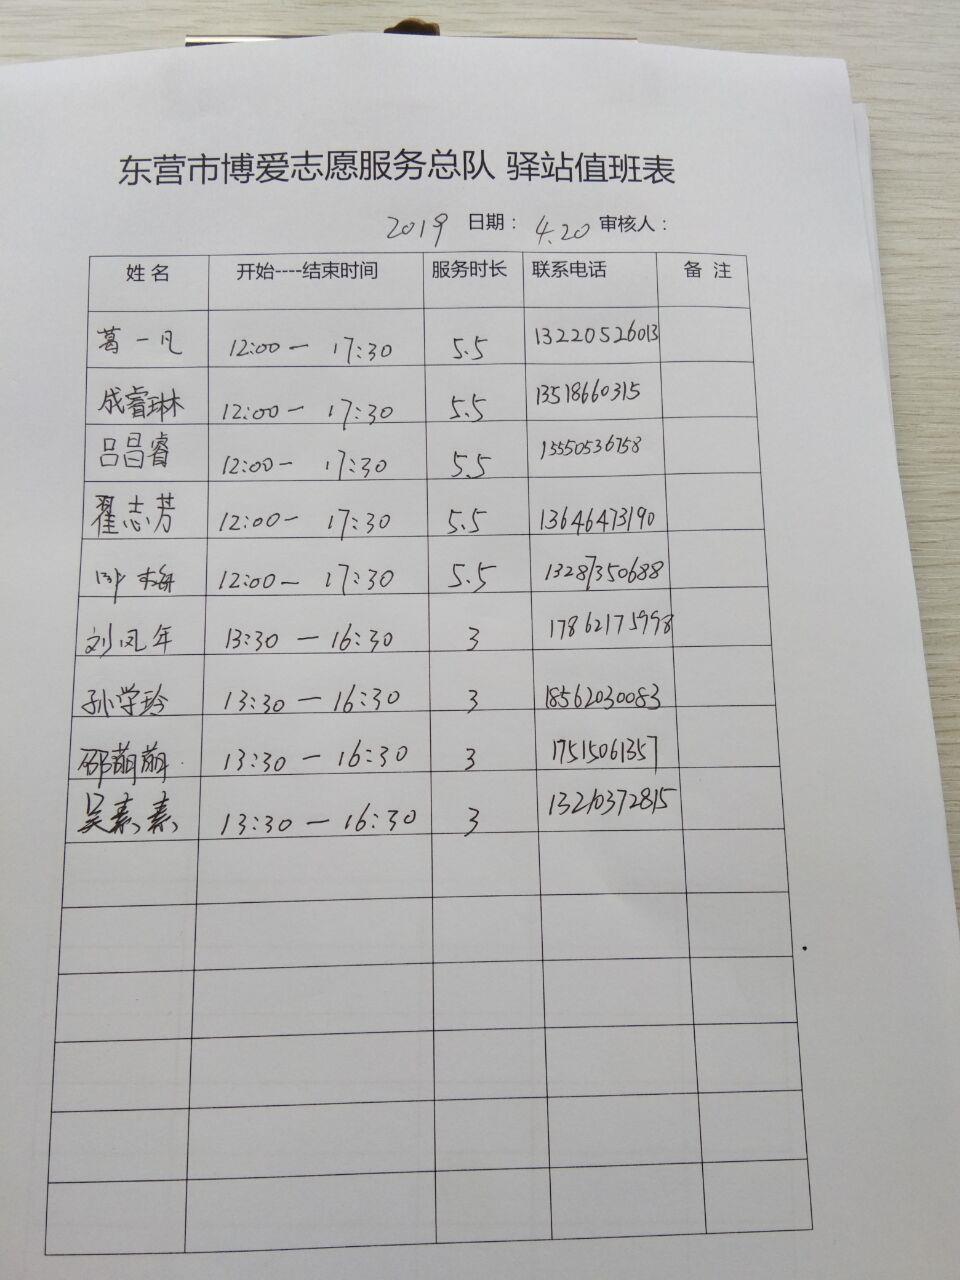 东营市博爱志愿服务总队 驿站值班表
2019 日期： 4.20 审核人：
姓 名 开始----结束时间 服务时长 联系电话 备 注
葛一凡 12:00 — 17:30 5.5 13220526013
成睿琳 12:00 — 17:30 5.5 13518660315
吕昌睿 12:00 — 17:30 5.5 15550536758
翟志芳 12:00 — 17:30 5.5 13646473190
梅 12:00 — 17:30 5.5 13287350688
刘凤年 13:30 — 16:30 3 17862175998
孙学玲 13:30 — 16:30 3 18562030083
邵萌萌 13:30 — 16:30 3 17515061357
吴素素 13:30 — 16:30 3 13210372815